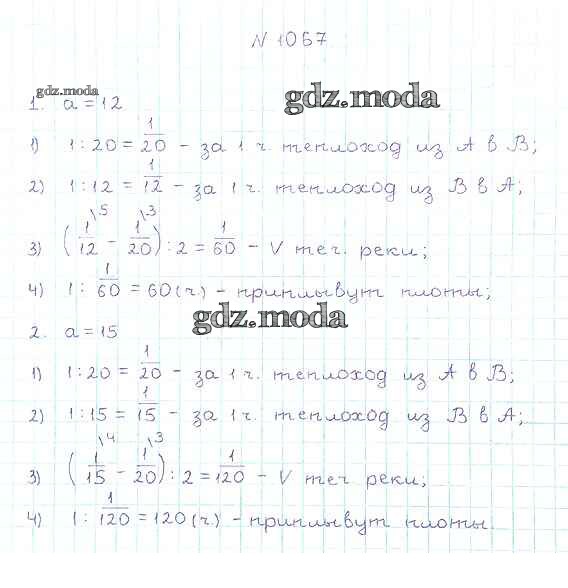 N 1067
gdz.moda
gdz.moda
1. a = 12
1) 1 : 20 = 1/20 - за 1 ч. теплоход из А в В;
2) 1 : 12 = 1/12 - за 1 ч. теплоход из В в А;
3) (1/12 \5 - 1/20 \3) : 2 = 1/60 - V теч. реки;
4) 1 : 1/60 = 60 (ч.) - приплывут плоты;
gdz.moda
2. a = 15
1) 1 : 20 = 1/20 - за 1 ч. теплоход из А в В;
2) 1 : 15 = 1/15 - за 1 ч. теплоход из В в А;
3) (1/15 \4 - 1/20 \3) : 2 = 1/120 - V теч реки;
4) 1 : 1/120 = 120 (ч.) - приплывут плоты.